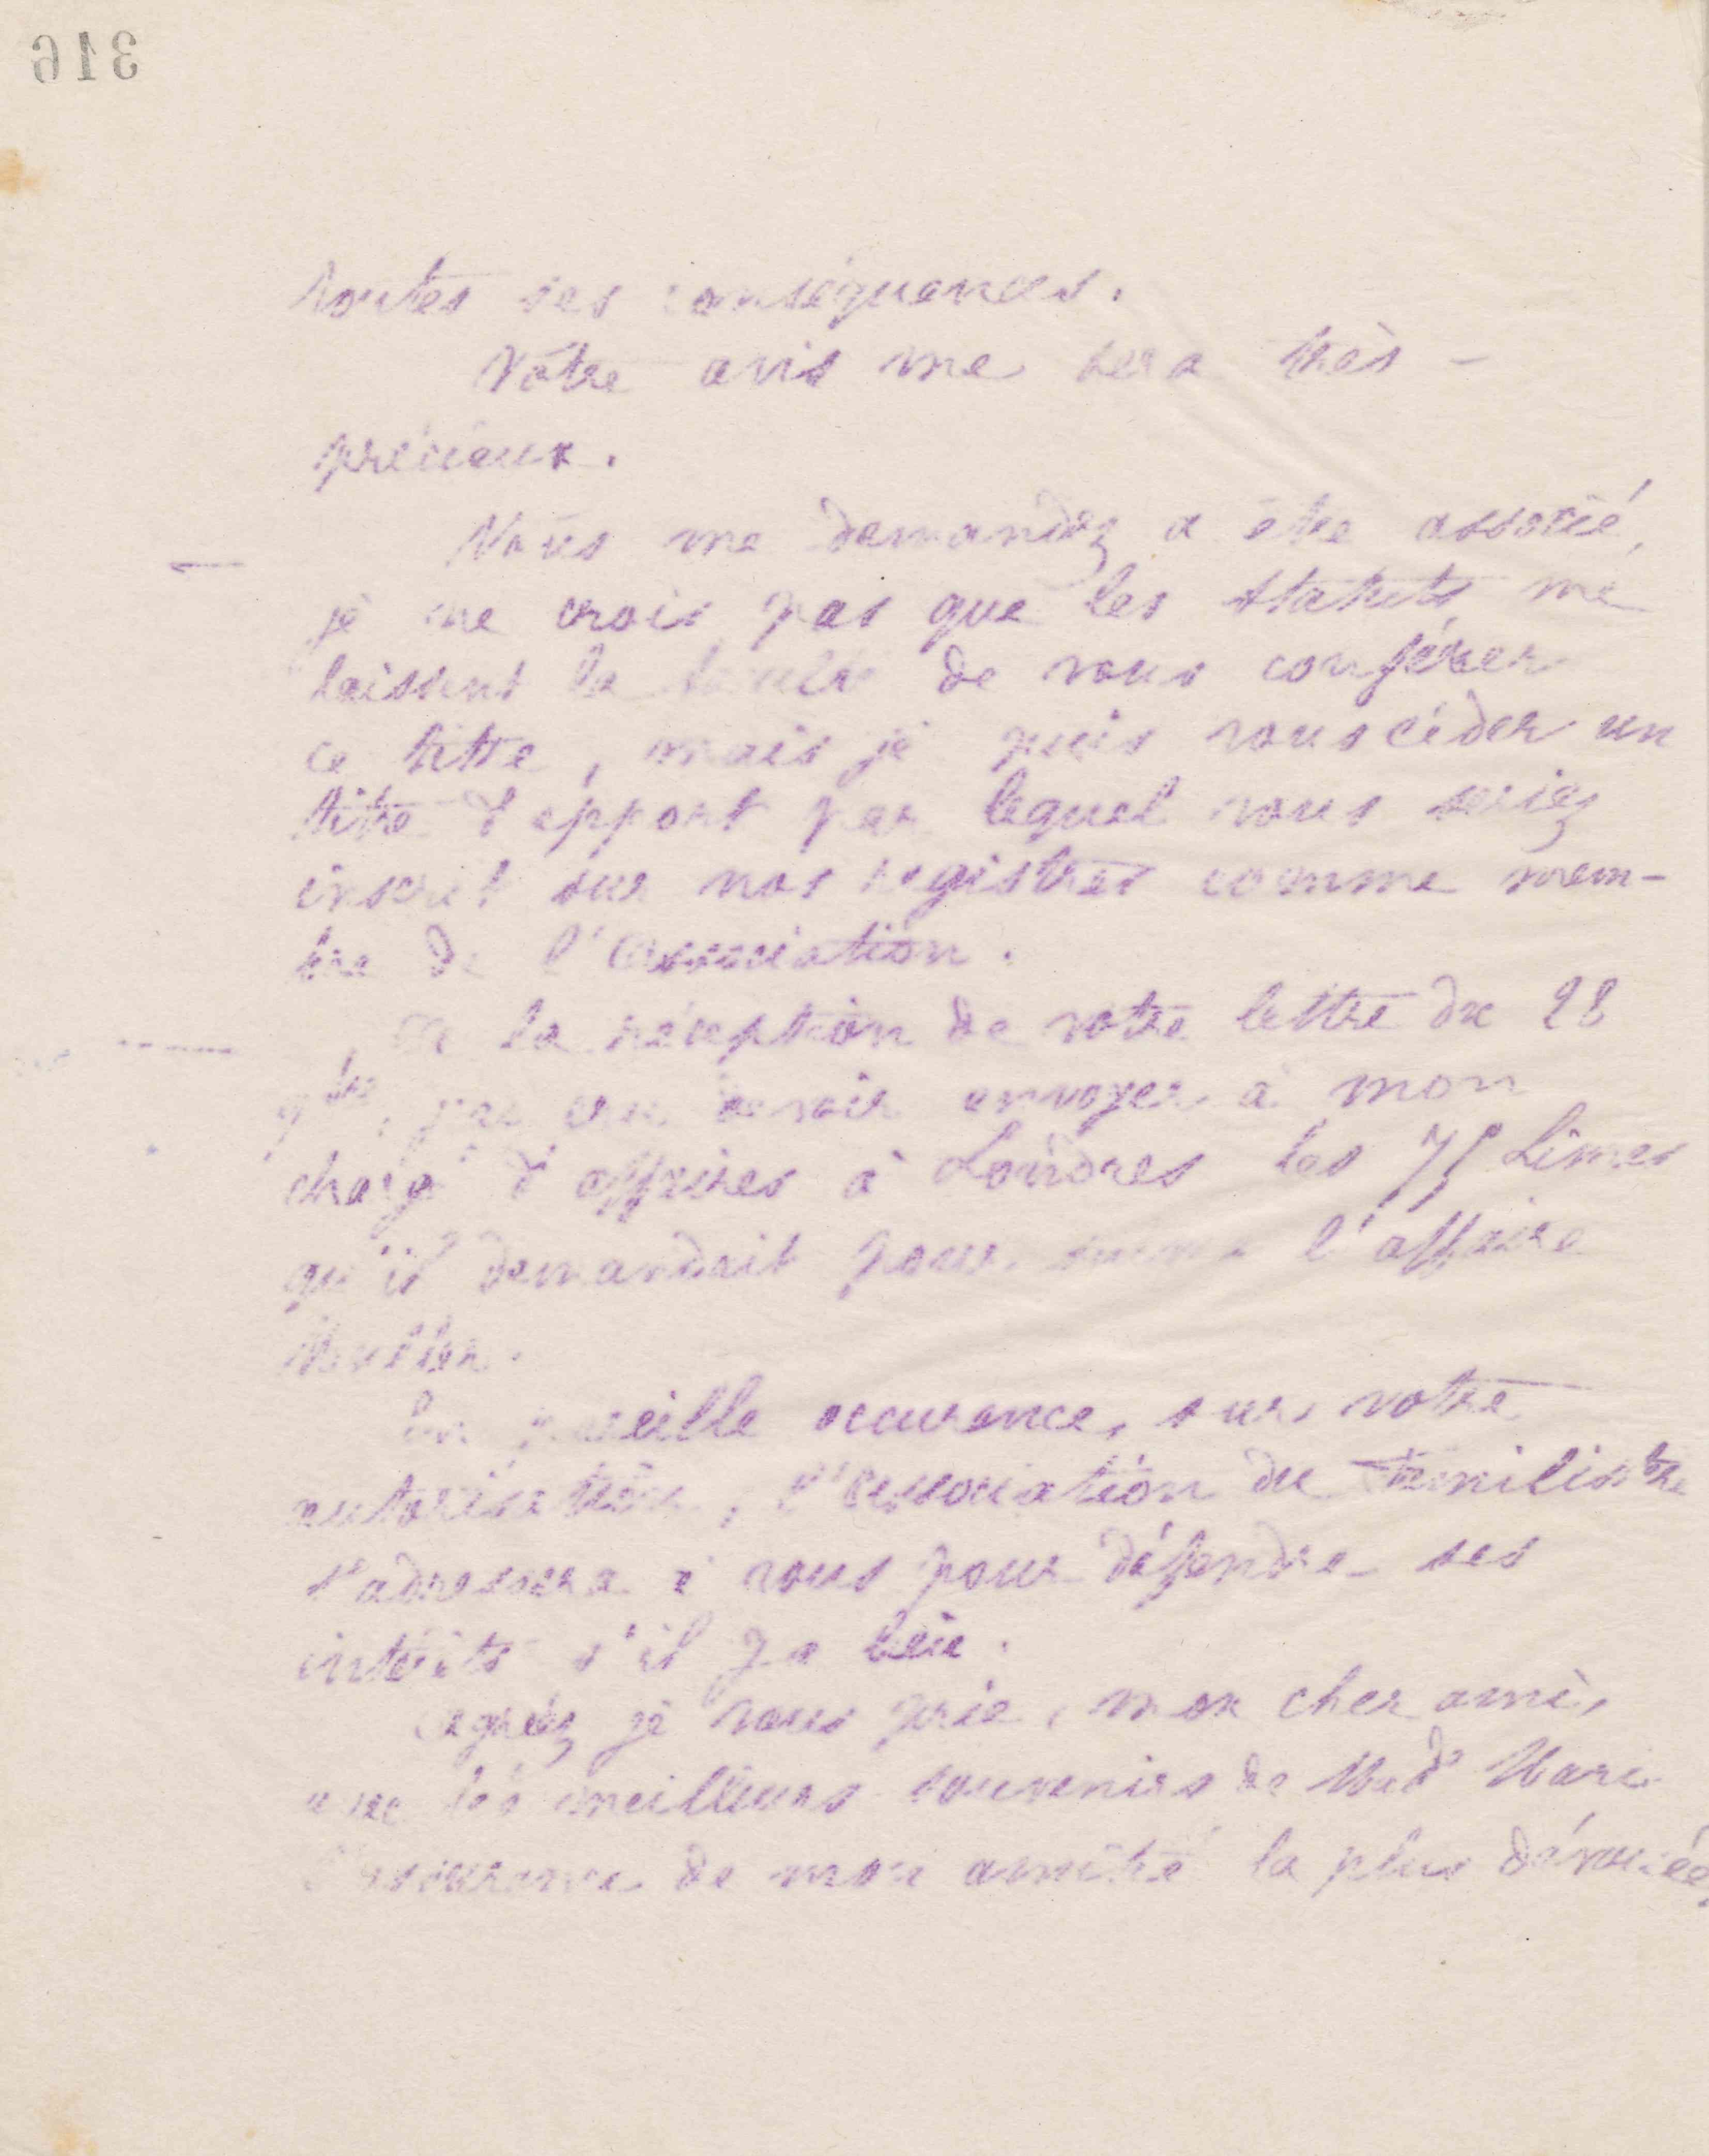 316
toutes ses conséquences.
Votre avis me sera très-
précieux.
Vous me demandez a être associé,
je ne crois pas que les statuts me
laissent la faculté de vous conférer
ce titre, mais je puis vous céder un
titre d'apport par lequel vous seriez
inscrit sur nos registres comme mem-
bre de l'Association.
A la réception de votre lettre du 28
9bre, j'ai cru devoir envoyer à mon
chargé d'affaires à Londres les 75 Livres
qu'il demandait pour suivre l'affaire
Muller.
En pareille occurence, sur votre
autorisation, l'Association du Familistère
s'adressera à vous pour défendre ses
intérêts s'il y a lieu.
Agréez je vous prie, mon cher ami,
avec les meilleurs souvenirs de Mad^e Marie
l'assurance de mon amitié la plus dévouée,